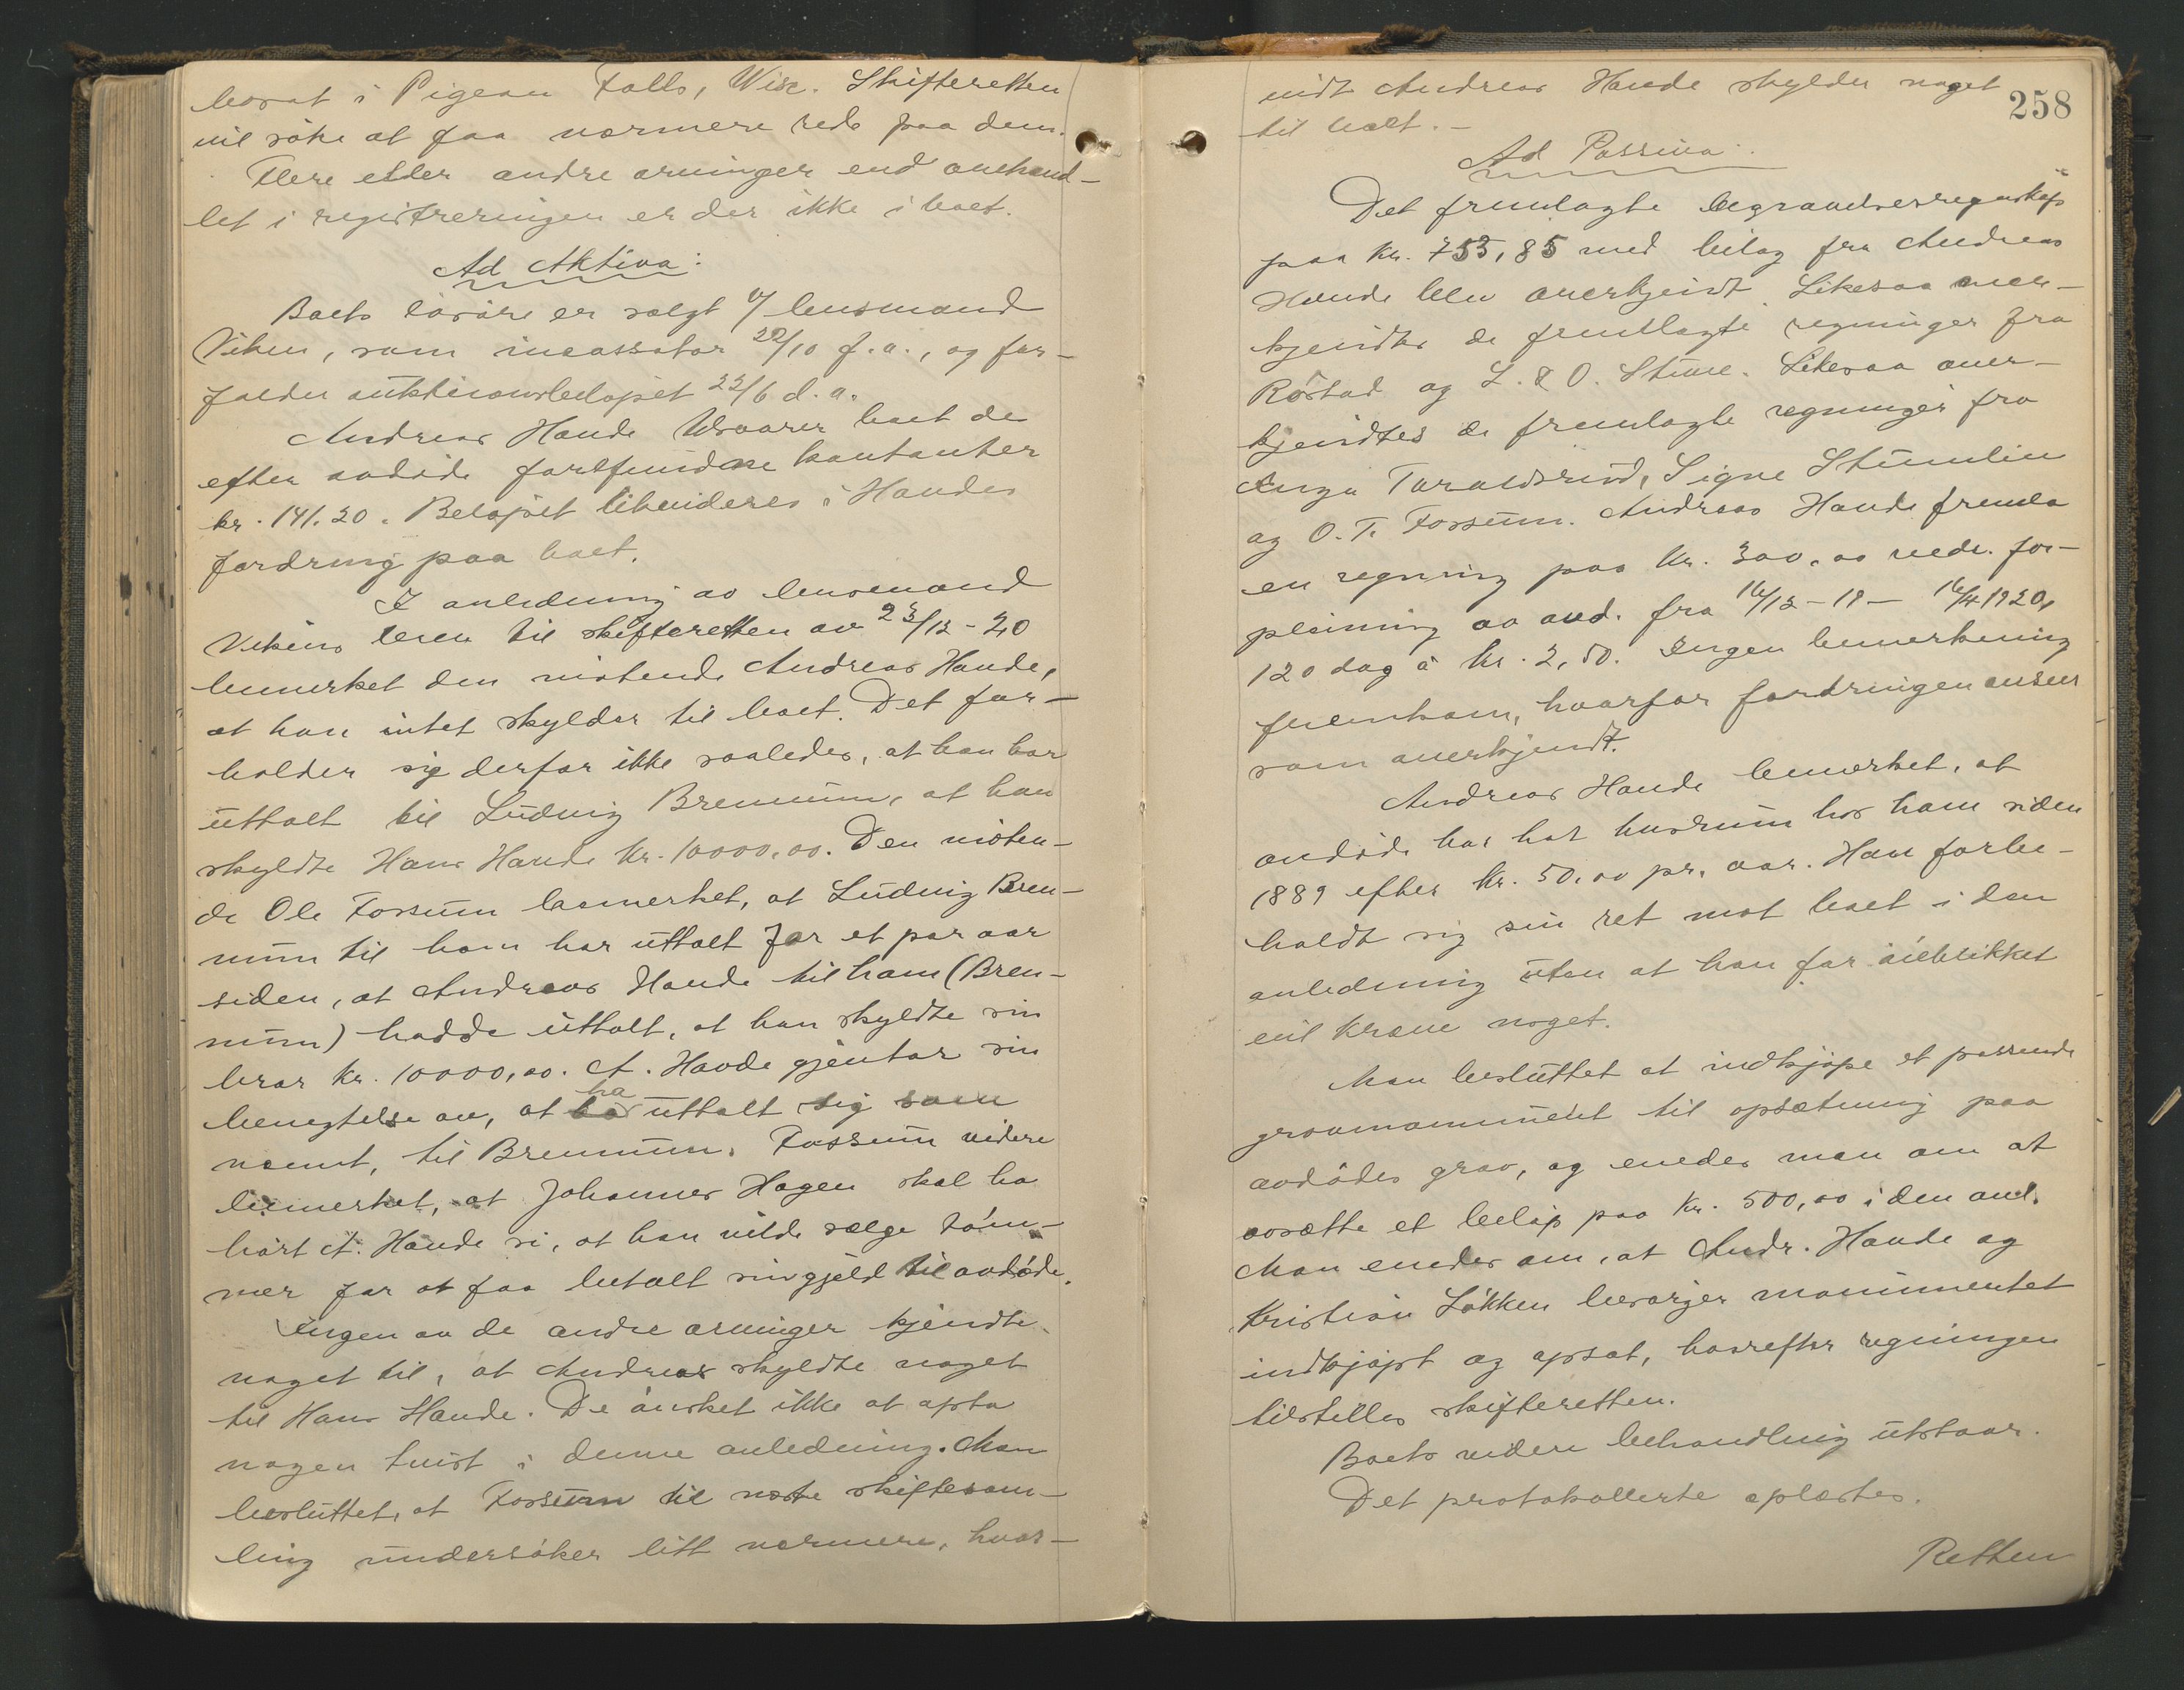 bosat i Pigeon Falls, Wisc. Skifteretten
vil søke at faa nærmere rede paa dem.
Flere eller andre arvinger end anehand-
let i registreringen er der ikke i boet.
Ad Aktiva:
Boets løsøre er solgt v/ lensmand
Viken, som incassator 22/10 f.a., og for-
falder auktionsbeløpet 22/6 d.a.
Andreas Haude tilsvarer boet de
efter avdøde forefundne kontanter
kr. 141.20. Beløpet likvideres i Haudes
fordring paa boet.
I anledning av lensmand
Vikens brev til skifteretten av 23/12-20
bemerket den møtende Andreas Haude,
at han intet skylder til boet. Det for-
holder sig derfor ikke saaledes, at han har
uttalt til Ludvig Brennum, at han
skyldte Hans Haude kr. 10000,00. Den møten-
de Ole Fossum bemerket, at Ludvig Bren-
num til ham har uttalt for et par aar
siden, at Andreas Haude til ham (Bren-
num) hadde uttalt, at han skyldte sin
bror kr. 10000,00. A. Haude gjentar sin
benegtelse av, at ha uttalt sig som
nævnt, til Brennum. Fossum videre
bemerket, at Johannes Hagen skal ha
hørt A. Haude si, at han vilde sælge tøm-
mer for at faa betalt sin gjeld til avdøde.
Ingen av de andre arvinger kjendte
noget til, at Andreas skyldte noget
til Hans Haude. De ønsket ikke at opta
nogen tvist i denne anledning. Man
besluttet, at Fossum til næste skiftesam-
ling undersøker litt nærmere, hvor-
258
vidt Andreas Haude skylder noget
til boet. -
Ad Passiva:
Det fremlagte begravelsesregnskap
paa kr. 753,85 med bilag fra Andreas
Haude blev anerkjendt. Likesaa aner-
kjendtes de fremlagte regninger fra
Røstad og L. & O. Stuve. Likesaa aner-
kjendtes de fremlagte regninger fra
Inga Taraldsrud, Signe Stumlien
og O. T. Fossum. Andreas Haude fremla
en regning paa kr. 300,00 vedr. for-
pleining av avd. fra 16/12-19 - 16/4 1920,
120 dag á kr. 2,50. Ingen bemerkning
fremkom, hvorfor fordringen ansees
som anerkjendt.
Andreas Haude bemerket, at
avdøde har hat husrum hos ham siden
1889 efter kr. 50,00 pr. aar. Han forbe-
holdt sig sin ret mot boet i den
anledning uten at han for øieblikket
vil kræve noget.
Man besluttet at indkjøpe et passende
gravmonument til opsætning paa
avdødes grav, og enedes man om at
avsætte et beløp paa kr. 500,00 i den anl.
Man enedes om, at Andr. Haude og
Kristian Løkken besørger monumentet
indkjøpt og opsat, hvorefter regningen
tilstilles skifteretten.
Boets videre behandling utstaar.
Det protokollerte oplæstes.
Retten